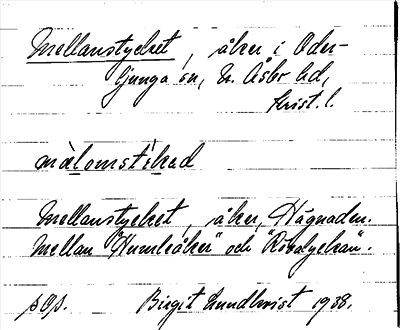 Mellanstycket, åker i Oder-
ljunga sn, N. Åsbo hd,
Krist. l.
màlomstikad
Mellanstycket, åker, Hägnaden.
Mellan "Humleåker" och
Birgit Lundkvist 1938.